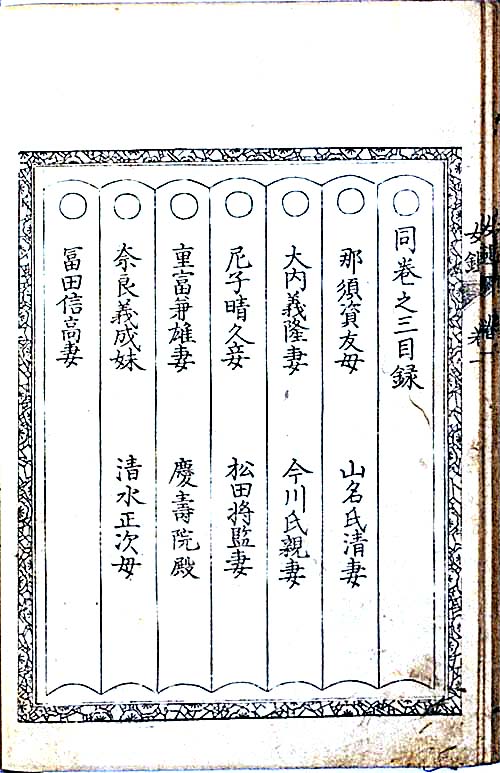 同巻之三目録
那須資友母　山名氏清妻
大内義隆妻　今川氏親妻
尼子晴久妾　松田将監妻
重冨兼雄妻　慶壽院殿
奈良義成妹　清水正次母
冨田信高妻